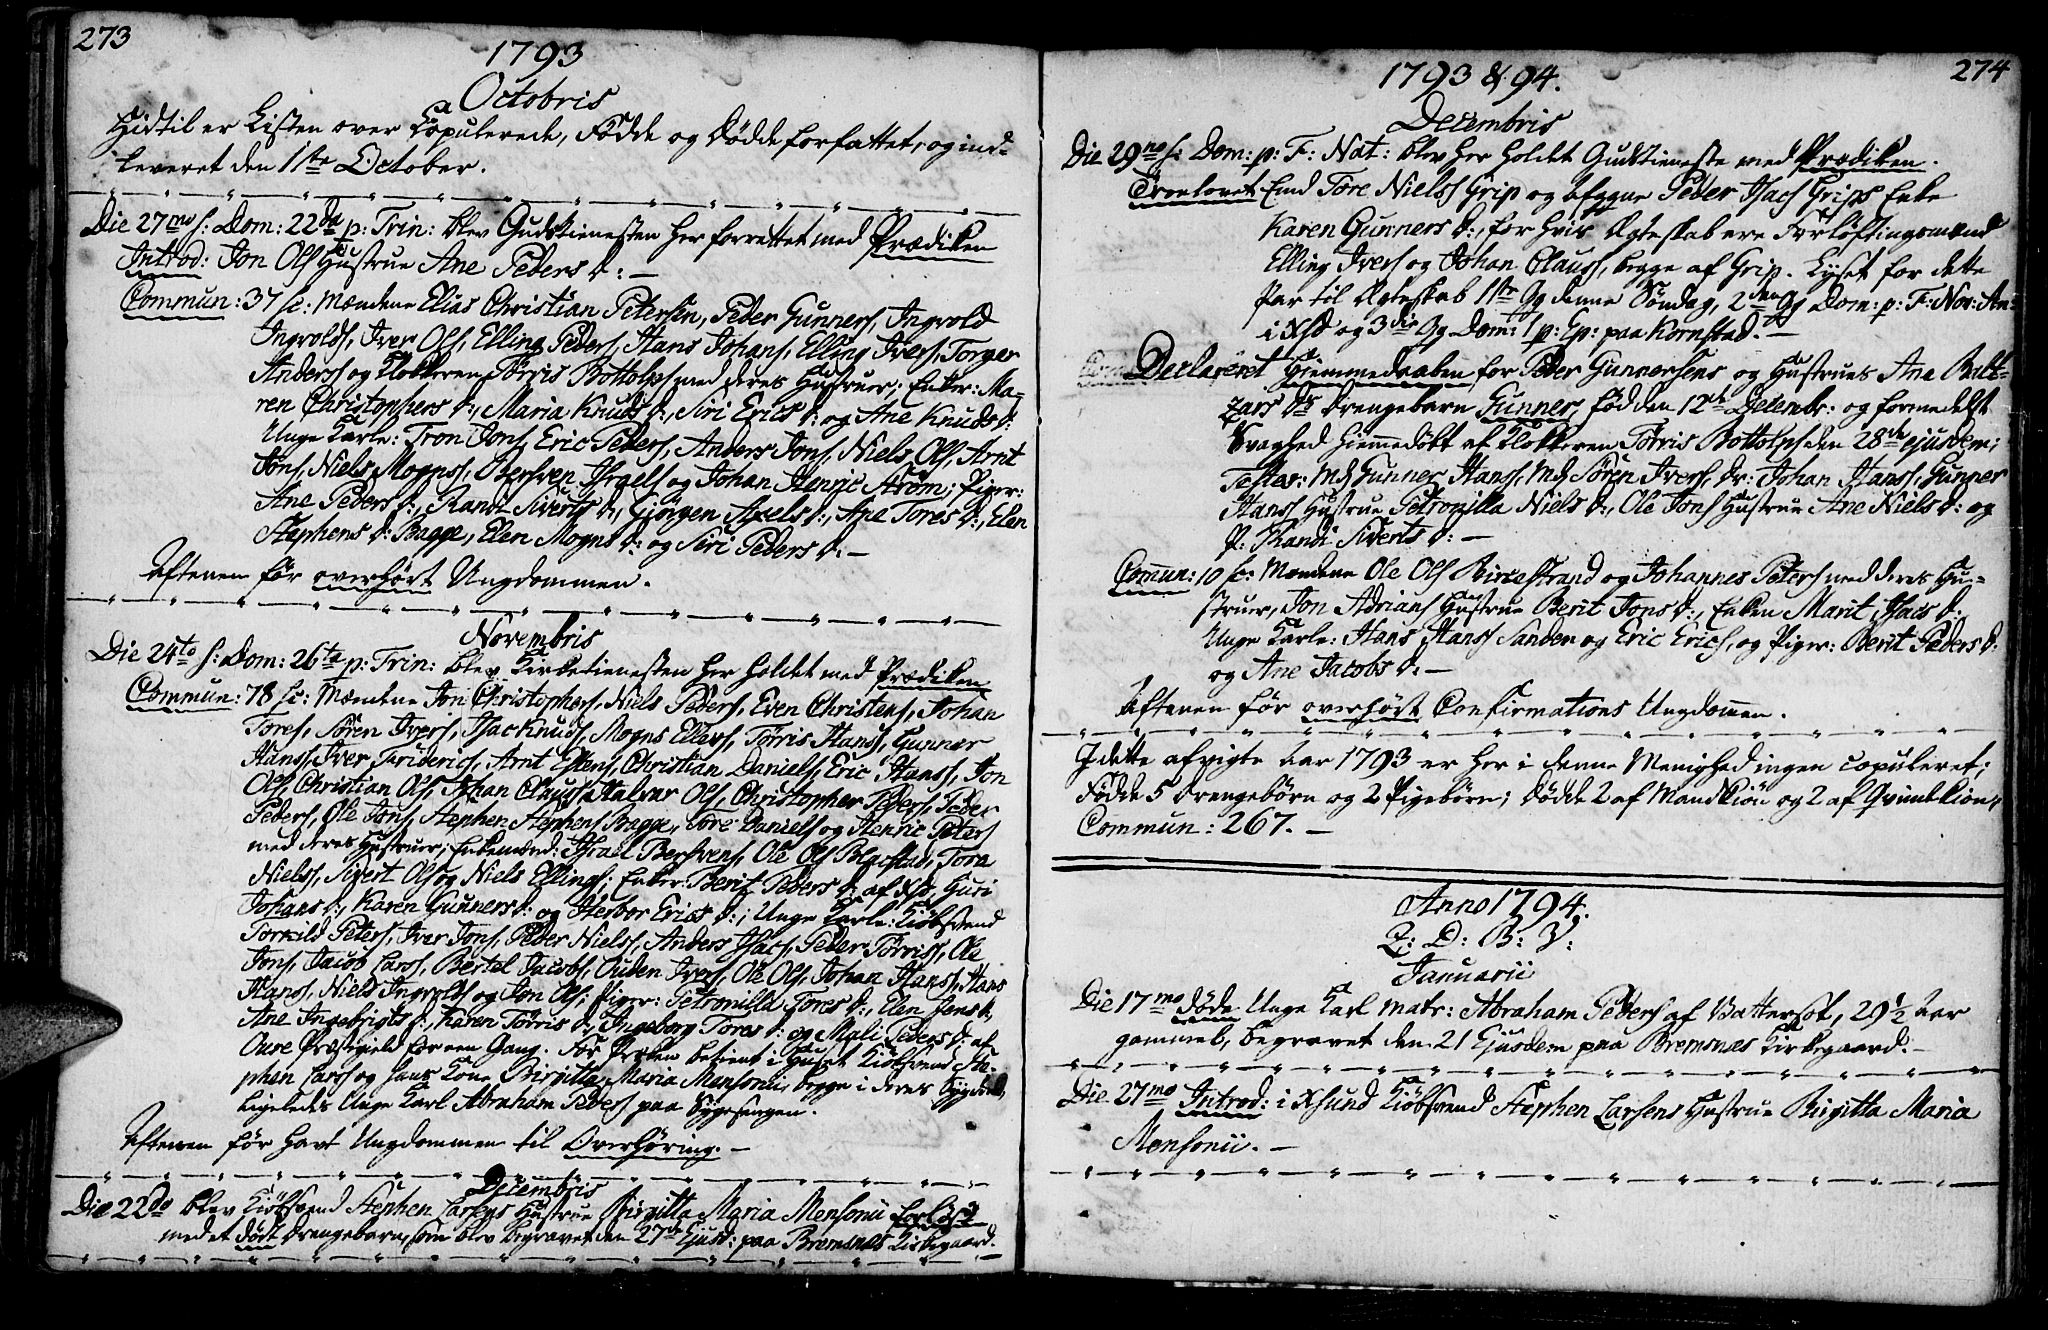 273
1793
Octobris
Hidtil er Listen over Copulerede, Födde og Dödde forfattet, og ind-
leveret den 11te October.
Die 27mo s: Dom: 22da p: Trin: blev Gudstienesten her forrettet med Prædiken
Introd: Jon Ols Hustrue Ane Peders d: —
Commun: 37 sc: Mændene Elias Christian Petersen, Peder Gunners, Ingvold
Ingvolds, Iver Ols, Elling Peders, Hans Johans, Elling Ivers, Torger
Anders og Klokkeren Törris Bottolphs med deres Hustruer; Enker: Ma-
ren Christophers d:, Maria Knuds d:, Siri Erics d: og Ane Knuds d:
Unge Karle: Tron Jons, Eric Peders, Anders Jons, Niels Ols, Arnt
Jons, Niels Mogns, Bersven Israels og Johan Henric Ström; Piger:
Ane Peders d:, Randi Siverts d:, Giörgen Axels d:, Ane Tores d:, Elen
Stephens d: Bagge, Elen Mogns d: og Siri Peders d: —
Aftenen för overhört Ungdommen.
Novembris
Die 24to s: Dom: 26ta p: Trin: blev Kirketienesten her holdet med Prædiken
Commun: 78 sc: Mændene Jon Christophers, Niels Peders, Even Christens, Johan
Tores, Sören Ivers, Isac Knuds, Mogns Ellers, Törris Hans, Gunner
Hans, Iver Friderics, Arnt Estens, Christian Daniels, Eric Hans, Jon
Ols, Christian Ols, Johan Claus, Halvor Ols, Christopher Peders, Peder
Peders, Ole Jons, Stephen Stephens Bagge, Tore Daniels og Henric Peters
med deres Hustruer; Enkemænd: Israel Bersvens, Ole Ols Blacstad, Tore
Niels, Sivert Ols og Niels Ellings; Enker: Berit Peders d: af Xsd, Guri
Johans d:, Karen Gunners d: og Herbor Erics d:; Unge Karle: Kiöbsvend
Torkild Peters, Iver Jons, Peder Niels, Anders Isacs, Peder Törris, Ole
Jons, Jacob Lars, Bertel Jacobs, Ouden Ivers, Ole Ols, Johan Hans, Hans
Hans, Niels Ingvolds og Jon Ols; Piger: Petronilla Tores d:, Elen Jens d:
Ane Ingebrigts d:, Karen Törris d:, Ingeborg Tores d: og Mali Peders d: af
Oure Præstegield for een Gang. För Præken betient i Huset Kiöbsvend Ste-
phen Lars og hans Kone Birgitta Maria Mensonii, begge i deres Sygdom,
ligeledes Unge Karl Abraham Peders paa Sygesengen.
Aftenen för havt Ungdommen til Overhöring. —
Decembris
Die 22do blev Kiöbsvend Stephen Larsens Hustrue Birgitta Maria Mensonii forlöst
med et dödt Drengebarn, som blev begravet den 27de Ejusd: paa Bremsnæs Kirkegaard.
274
1793 & 94.
Decembris
Die 29no s: Dom: p: F: Nat: blev her holdet Gudstieneste med Prædiken.
Trolovet Emd Tore Niels Grip og afgangne Peder Isacs Grips Enke
Karen Gunners d:, for hvis Ægteskab ere Forlöftningsmænd
Elling Ivers og Johan Claus, begge af Grip. Lyset for dette
Par til Ægteskab 1ste Gg denne Söndag, 2den Gg Dom: p: F: Nov: An:
i Xsd og 3die Gg Dom: 1 p: Ep: paa Kornstad. —
Declareret Hiemmedaaben for Peder Gunnersens og Hustrues Ane Balt-
zars Drs Drengebarn Gunner, föd den 12te Decembr: og formedelst
Svaghed hiemedöbt af Klokkeren Törris Bottolphs den 28de ejusdem;
Testes: Md Gunner Hans, Md Sören Ivers, Dr: Johan Hans, Gunner
Hans Hustrue Petronilla Niels d:, Ole Jons Hustrue Ane Niels d: og
P: Randi Siverts d: —
Comun: 10 sc: Mændene Ole Ols Bircestrand og Johannes Peters med deres Hu-
struer, Jon Adrians Hustrue Berit Jons d:, Enken Marit Isacs d:
Unge Karle: Hans Hans Sanden og Eric Erics, og Piger: Berit Peders d:
og Ane Jacobs d: —
Aftenen för overhört Confirmations Ungdomen.
I dette afvigte Aar 1793 er her i denne Menighed ingen copuleret;
Födde 5 Drengebörn og 2 Pigebörn; Dödde 2 af Mandkiön og 2 af Qvindkiön,
Commun: 267. —
Anno 1794.
Q: D: B: V:
Januarii
Die 17mo döde Unge Karl Matr: Abraham Peders af Vattersöt, 29 1/2 Aar
gammel, begravet den 21 Ejusdem paa Bremsnæs Kirkegaard. —
Die 27mo Introd: i Xsund Kiöbsvend Stephen Larsens Hustrue Birgitta Maria
Mensonii. —